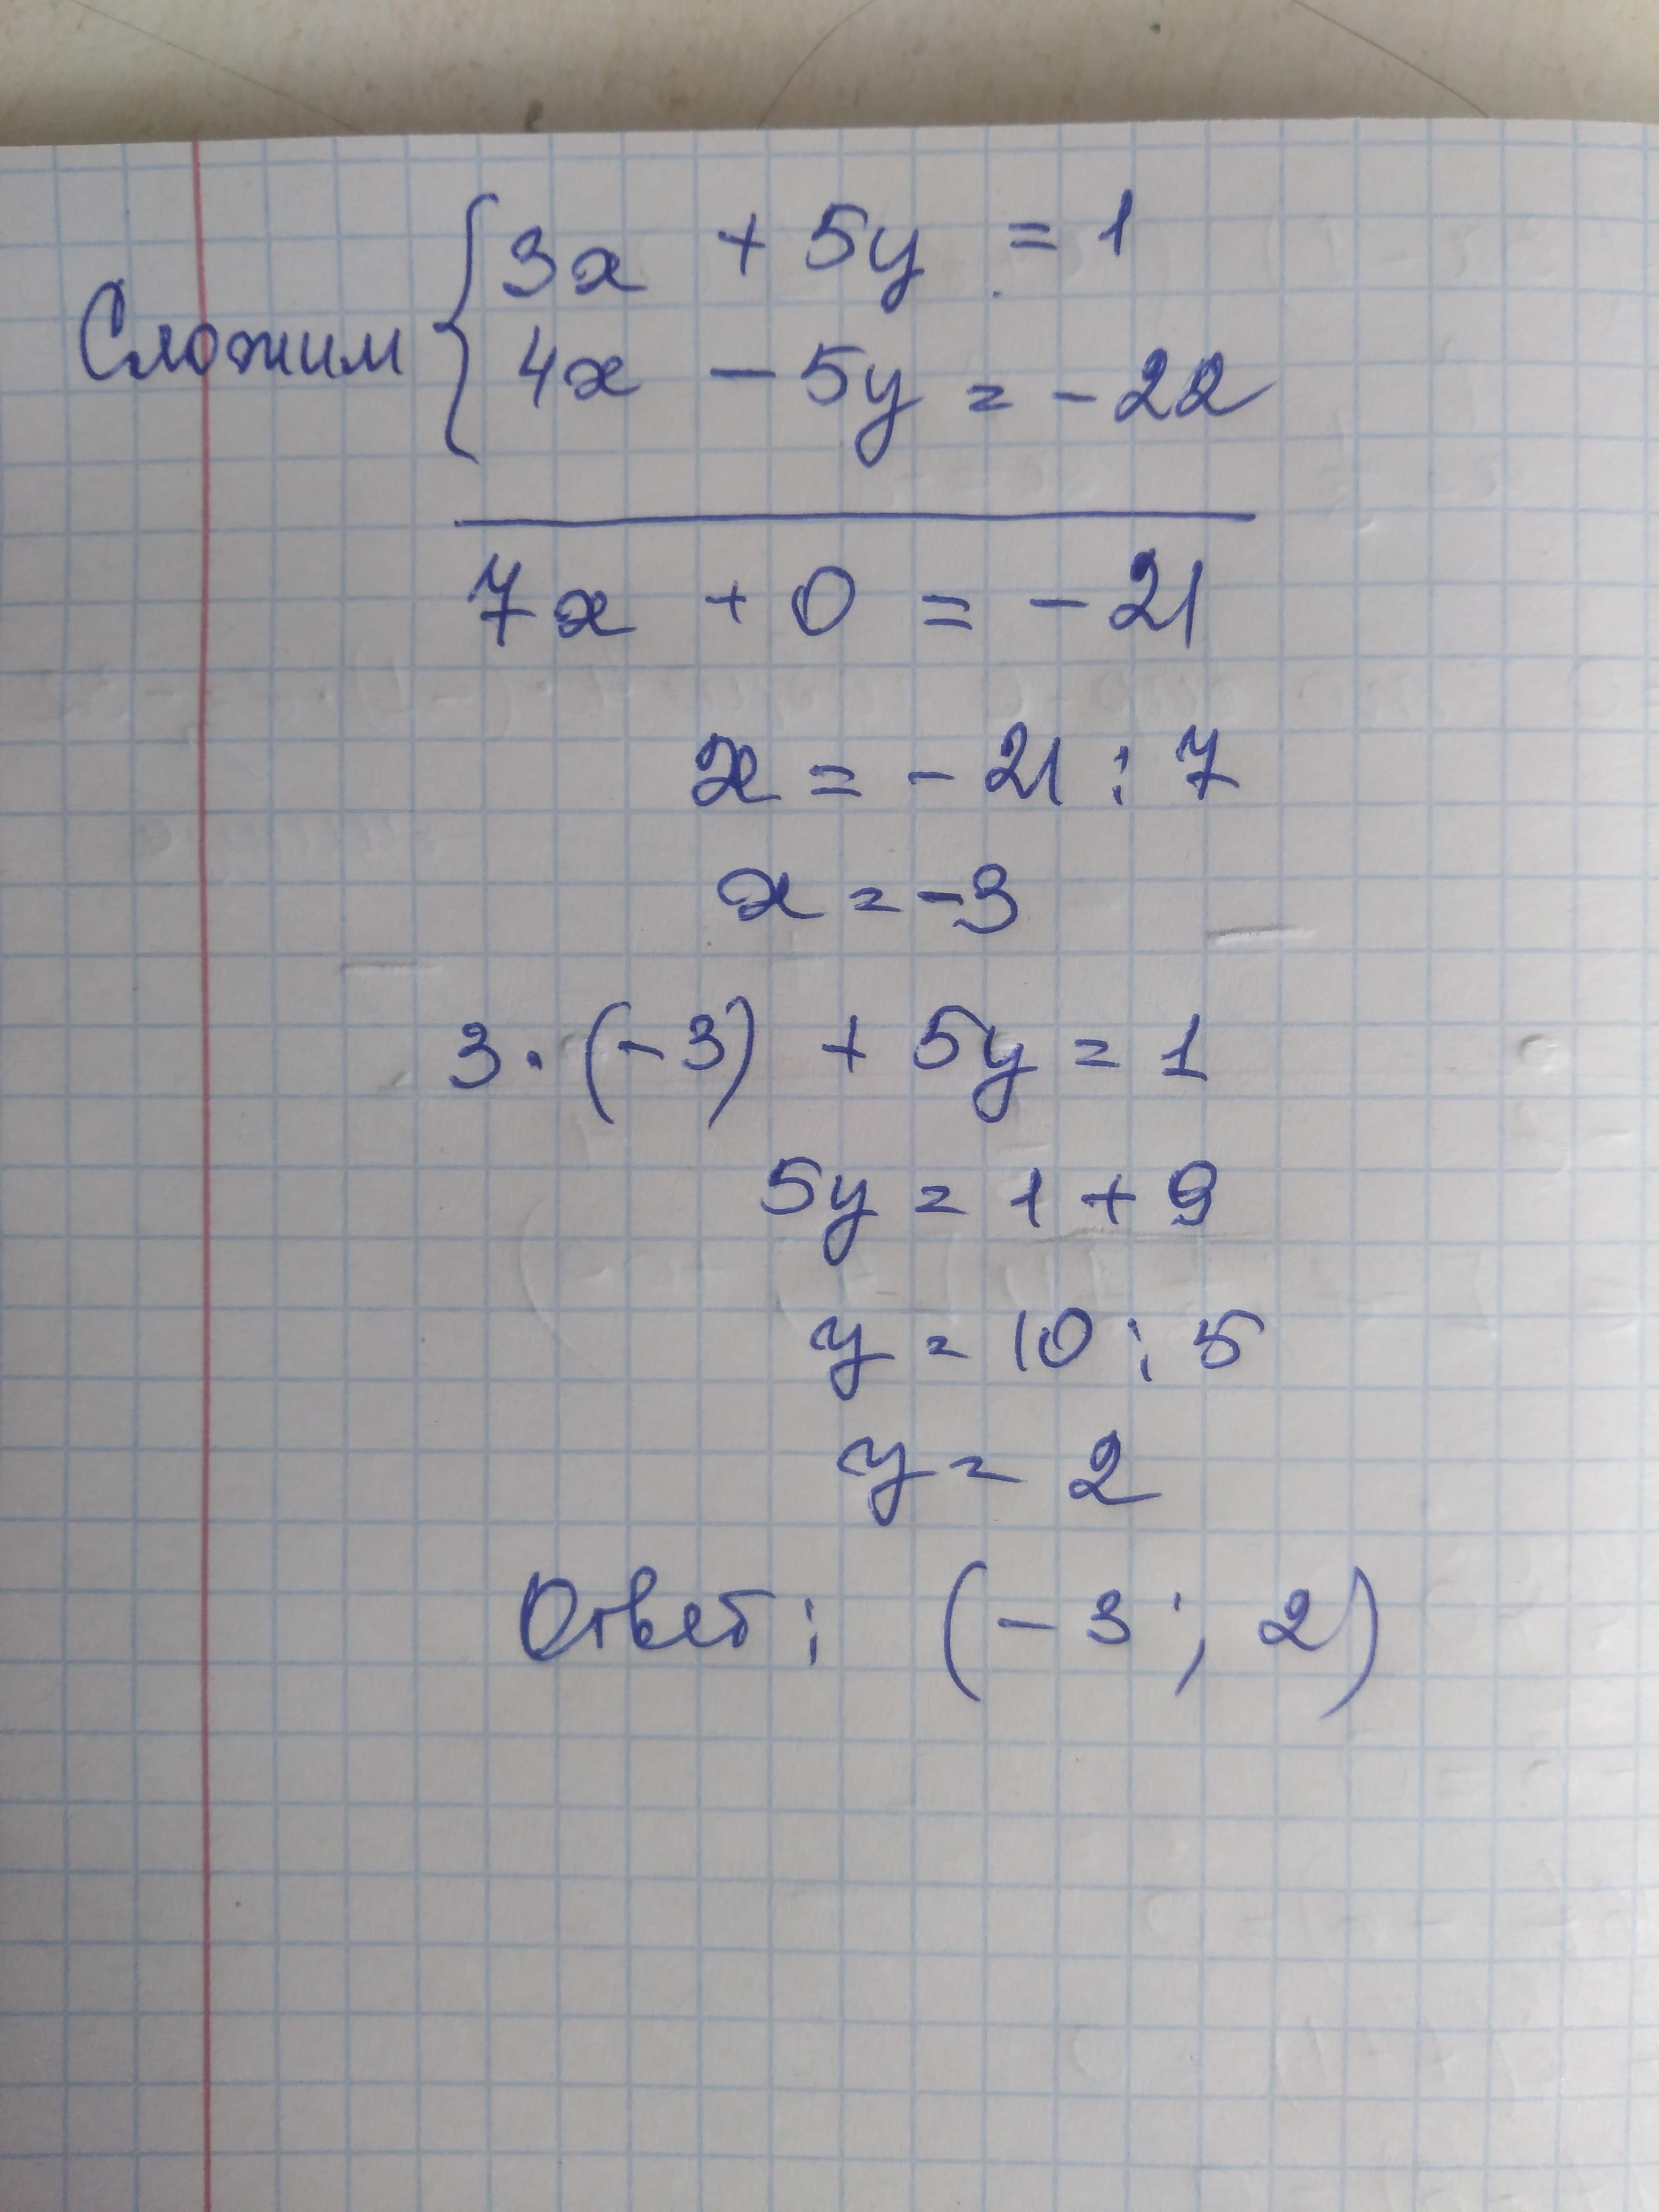 3x + 5y = 1
Сложим
4x - 5y = -22
7x + 0 = -21
x = -21 : 7
x = -3
3 · (-3) + 5y = 1
5y = 1 + 9
y = 10 : 5
y = 2
Ответ: (-3; 2)